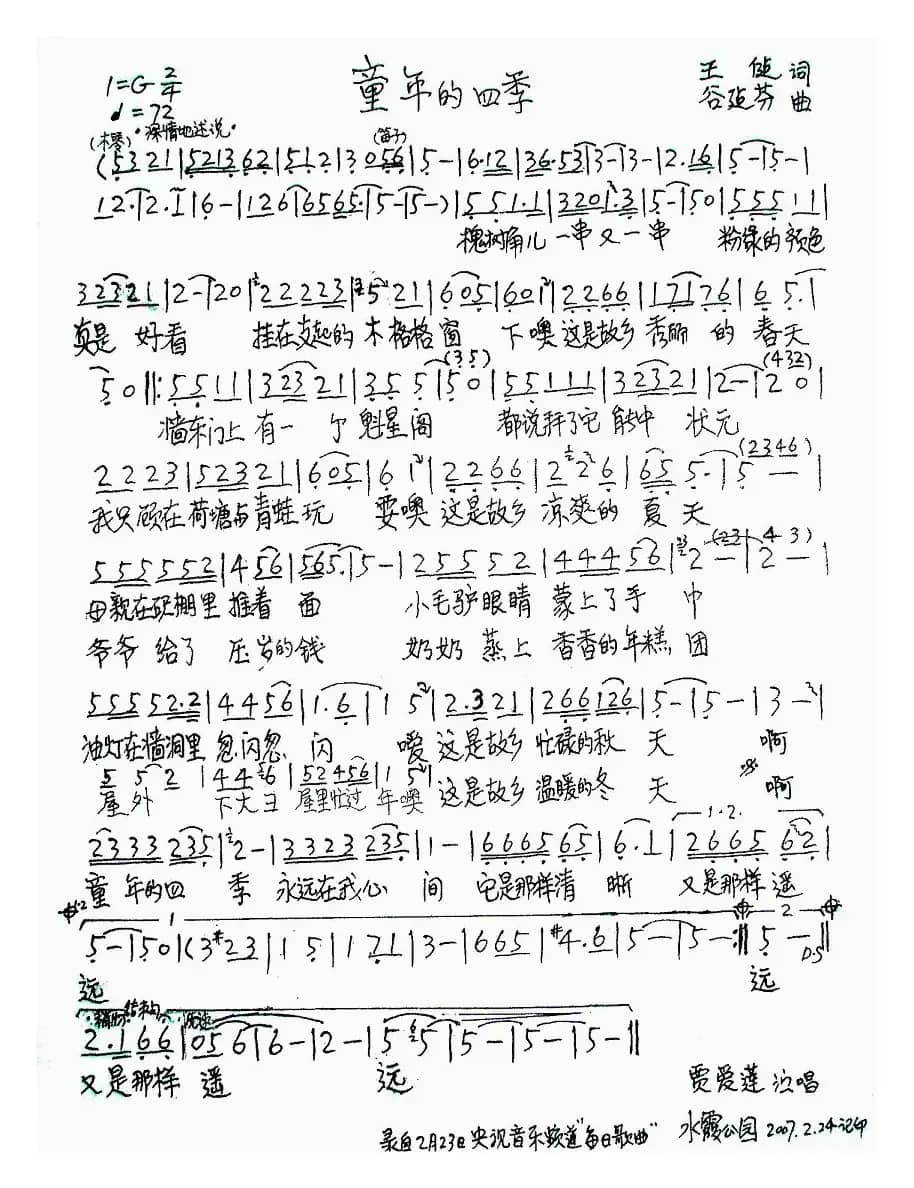 童年的四季
1=G 2/4
♩=72
王健 词
谷建芬 曲
深情地述说
(5321|521362|512|3056|5-|6·12|36·53|3-|3-|2·16|5-|5-|
12·|2·1|6-|126|6565·|5-|5-)|551·1|3201·3|5-|50|55511|
槐树角儿 一串又一串 粉绿的颜色
32321|2-|20|22223|521|605|601|2266|17176|65·|
真是 好看 挂在支起的 木格格窗 下噢 这是故乡 秀丽 的 春天
(35) (432)
50‖:5511|32321|355|50|55111|32321|2-|20|
墙东门上 有一 个 魁星阁 都说拜了它 能中 状元
(2346)
2223|52321|605|61|2266|226|655·|5-|
我只顾在荷塘与青蛙玩 耍噢 这是故乡 凉爽的 夏 天
555552|456|565·|5-|25552|44456|2-|2-|
母亲在碾棚里 推着 面 小毛驴眼睛 蒙上了手 巾
爷爷 给了 压岁的钱 奶奶 蒸上 香香的年糕 团
55552·2|4456|1·6|15|2·321|266126|5-|5-|3-|
油灯在墙洞里 忽闪忽 闪 嗳 这是故乡 忙碌的秋 天 啊
552|4456|52456|15|
屋外 下大雪 屋里忙过 年噢 这是故乡 温暖的冬 天 啊
1·2·
2333235|2-|3323235|1-|666565|6·1|266562|
童 年的四 季 永远在我心 间 它是那样清 晰 又是那样 遥
1 2
5-|50|(3#23|15|171|3-|665|#4·6|5-|5-:‖5-‖
D.S
远 远
2·166|056|6-|2-|55|5-|5-|5-‖
又是那样 遥 远
贾爱莲 演唱
录自2月23日央视音乐频道"每日歌曲" 水霞公园 2007.2.24记印